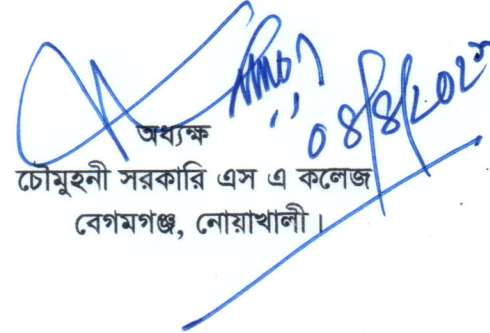 অধ্যক্ষ
চৌমুহনী সরকারি এস এ কলেজ
বেগমগঞ্জ, নোয়াখালী।